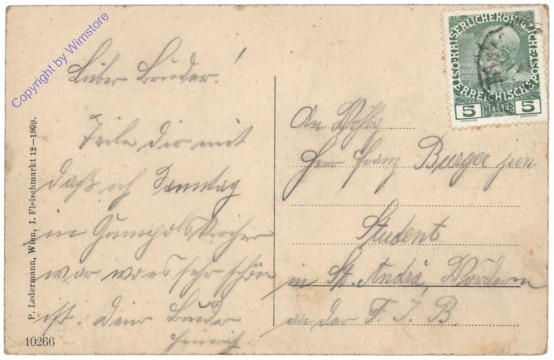 Copyright by Wimstore
Lieber Bruder!
Teile dir mit
daß ich Sonntag
in Gumpoldskirchen
war wo es sehr schön
ist. Dein Bruder
Heinrich
P. Ledermann, Wien, I. Fleischmarkt 12—1909.
10266
KAISERLICHE KÖNIGLICHE ÖSTERREICHISCHE
1908
5 HELLER 5
An
Herr Franz Burger jun
Student
in St. Andrä, Wördern
an der F. J. B.